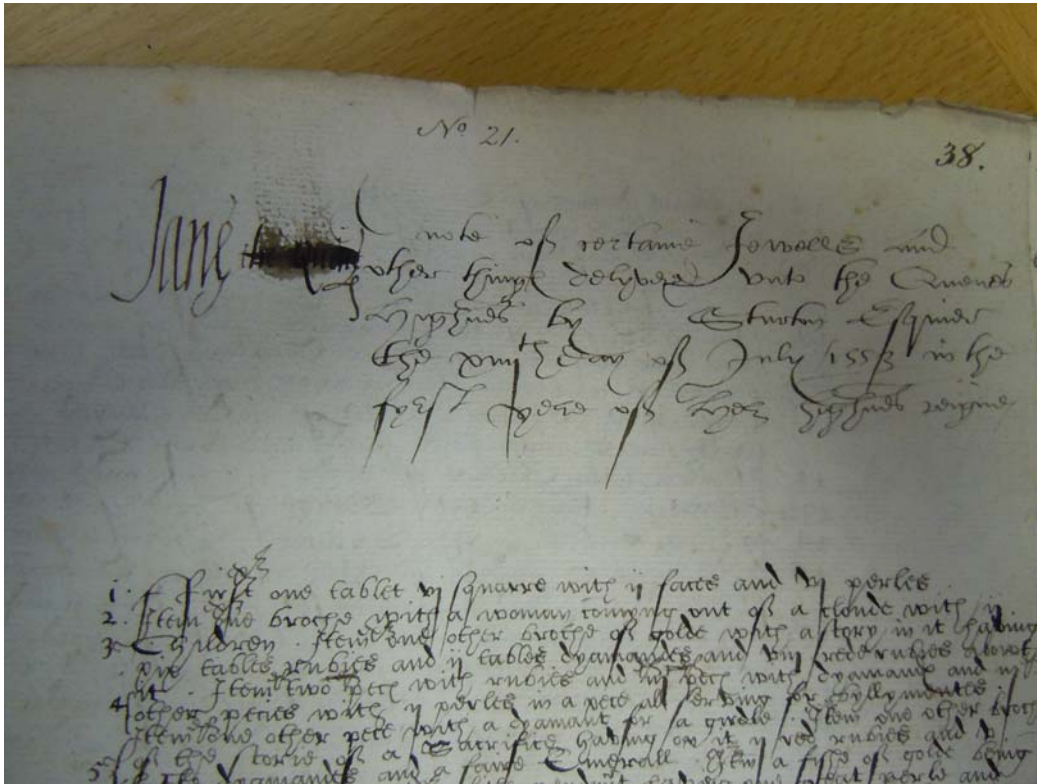 No 21.
38.
Jane the Quene
note of certaine Jewelles and
other things delyvered unto the Quenes
Highnes by Sturton Esquier
the xiiijth day of July 1553 in the
fyrst yere of her highnes reigne
1. First one tablet vj squarre with ij faces and vj perles
2. Item one broche with a woman comyng out of a cloude with ij
3. Children. Item one other broche of golde with a story in it having
tables rubies and ij tables dyamandes and viij rede rubies about
it. Item two peces with rubies and iij peces with dyamant and iij
4 other peces with ij perles in a pece all serving for byllymentes.
Item one other pece with a dyamant for a girdle. Item one other broch
of the storie of a Sacrifice having on it ij red rubies and v
5 dyamandes and a faire Emerall. Item a fishe of golde being